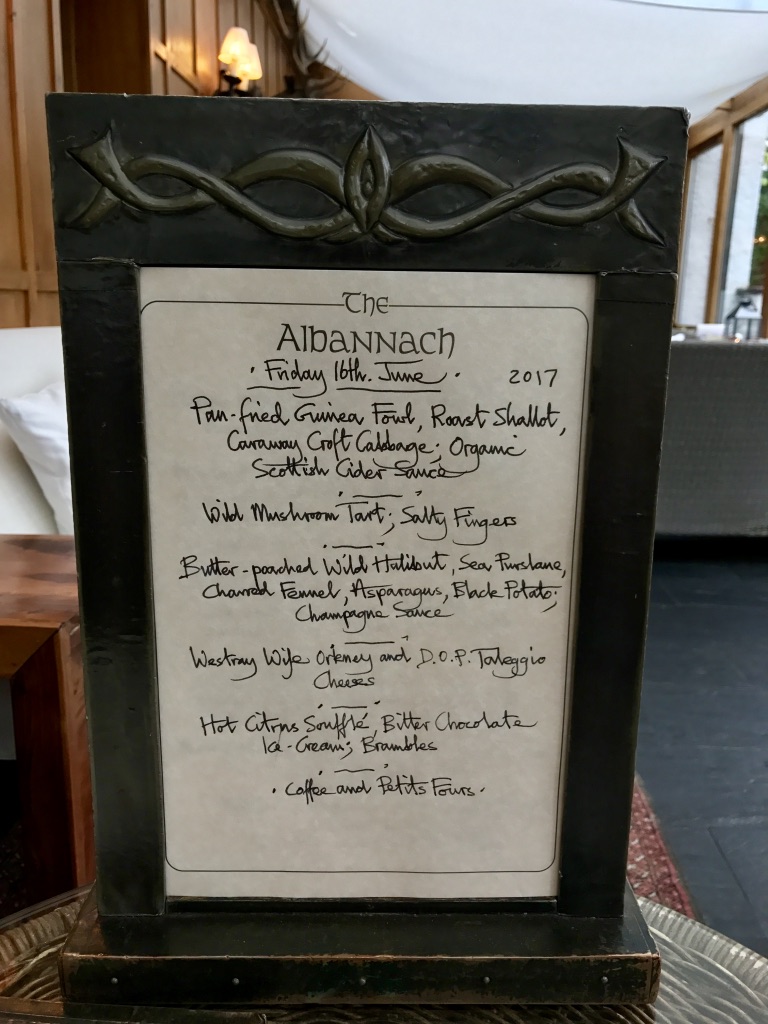 The
Albannach
· Friday 16th. June · 2017
Pan-fried Guinea Fowl, Roast Shallot,
Caraway Croft Cabbage; Organic
Scottish Cider Sauce
Wild Mushroom Tart; Salty Fingers
Butter-poached Wild Halibut, Sea Purslane,
Charred Fennel, Asparagus, Black Potato;
Champagne Sauce
Westray Wife Orkney and D.O.P. Taleggio
Cheeses
Hot Citrus Soufflé, Bitter Chocolate
Ice-Cream; Brambles
· Coffee and Petits Fours ·